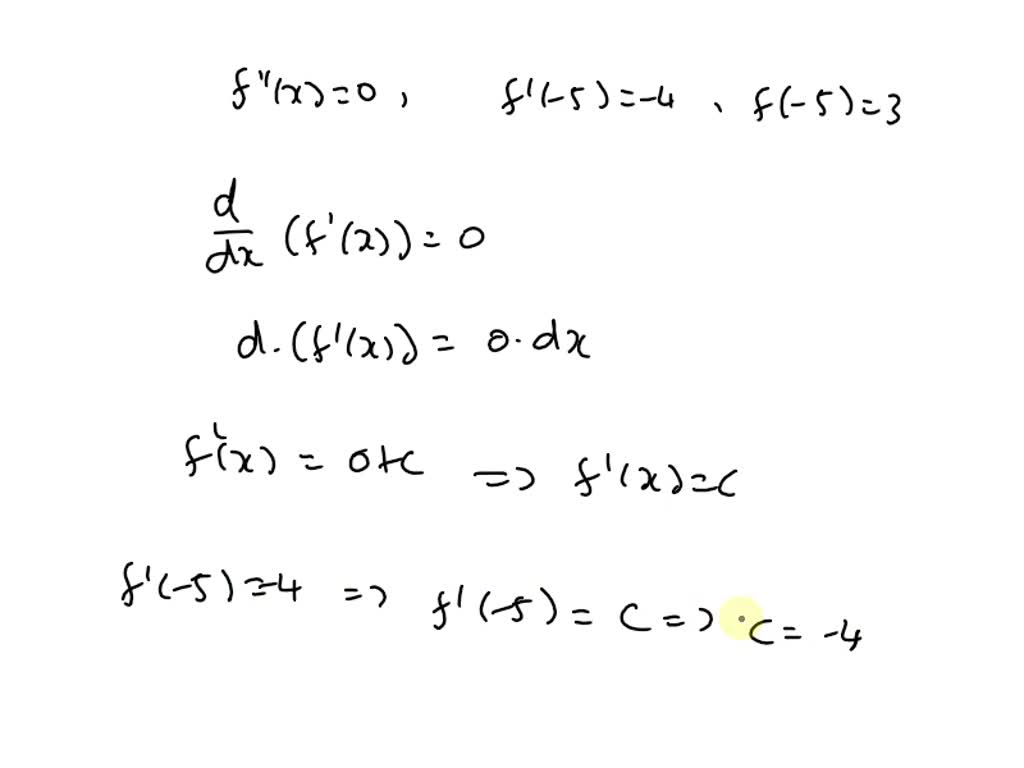 f''(x)=0, f'(-5)=-4, f(-5)=3
d/dx (f'(x))=0
d.(f'(x))= 0.dx
f'(x)= 0+C => f'(x)=C
f'(-5)=-4 => f'(-5)= C => C= -4